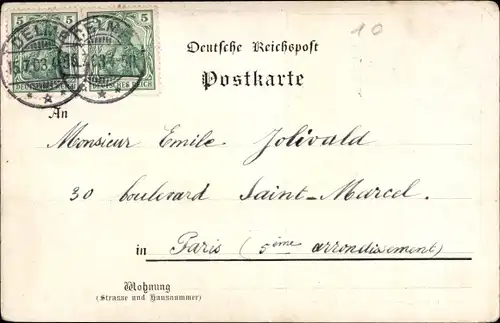 5 5 5
DELME DELME
DEUTSCHES REICH
10
Deutsche Reichspost
Postkarte
An
Monsieur Emile Jolivald
30 boulevard Saint-Marcel.
in Paris (5ème arrondissement)
Wohnung
(Strasse und Hausnummer)